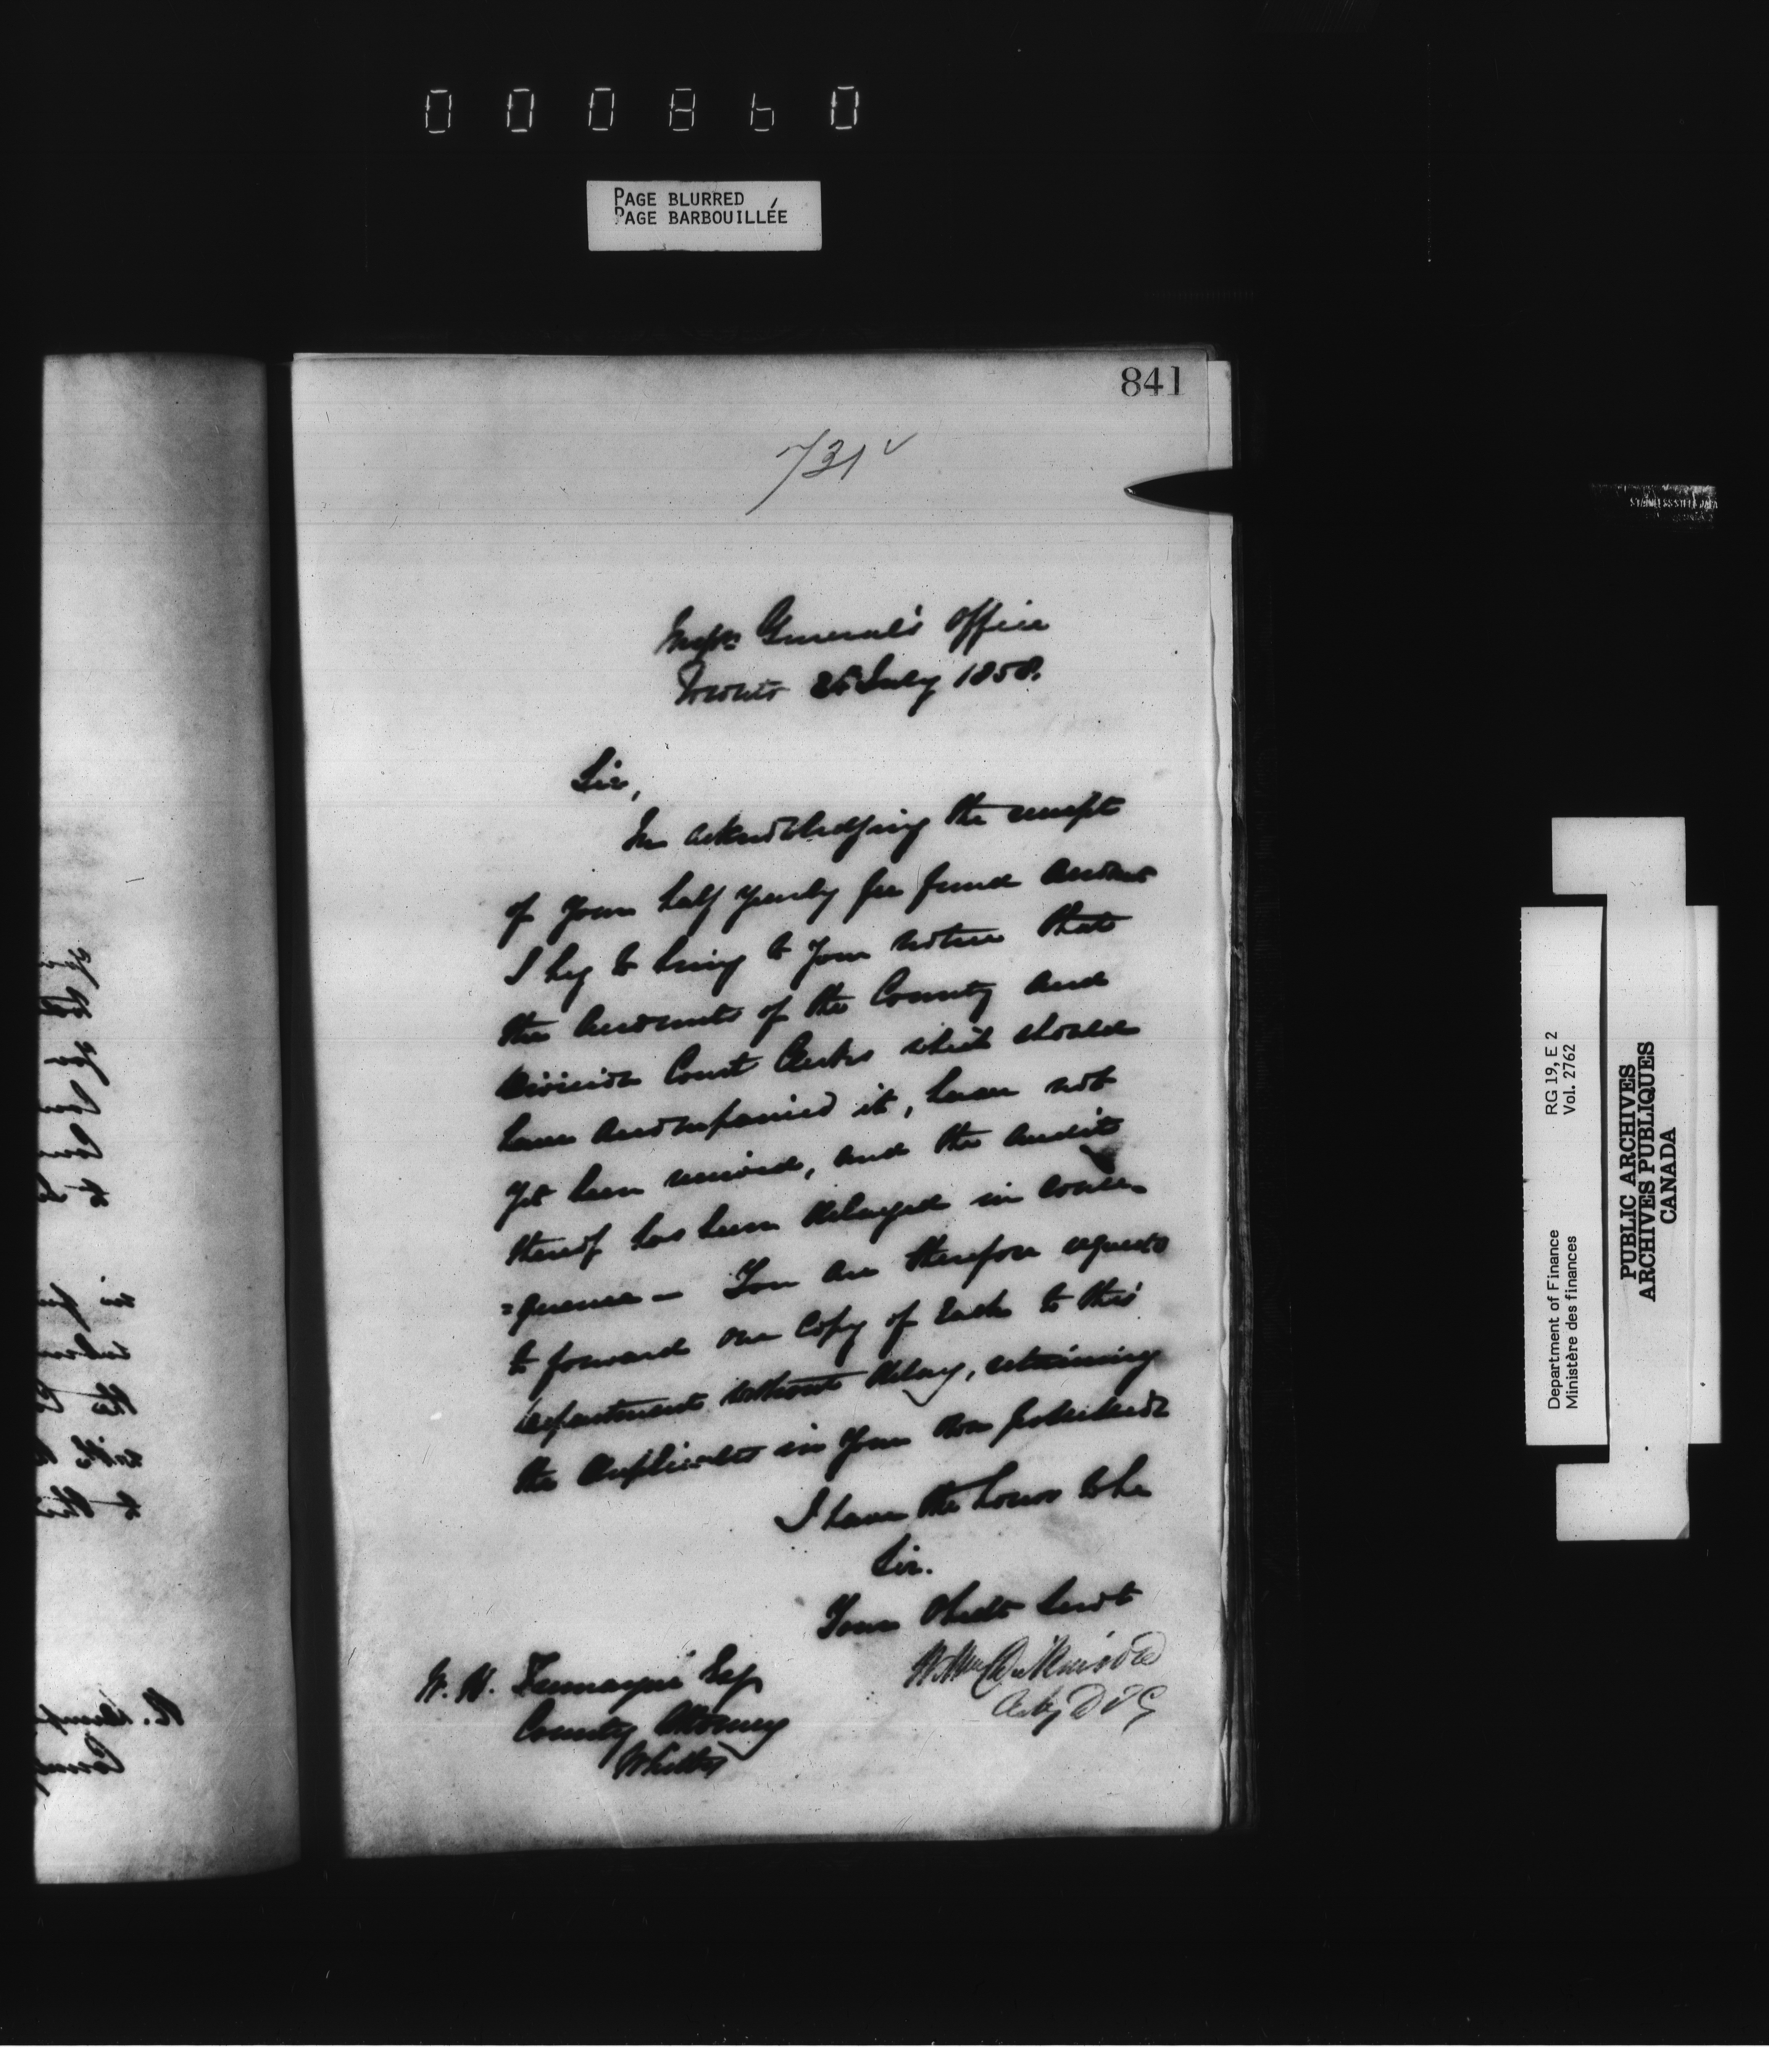 000860
PAGE BLURRED
PAGE BARBOUILLÉE
841
731
Inspr General's Office
Toronto 26 July 1858.
Sir,
In acknowledging the receipt
of your half yearly fee fund account
I beg to bring to your notice that
the accounts of the County and
Division Court Clerks which should
have accompanied it, have not
yet been received, and the audit
thereof has been delayed in conse-
=quence - You are therefore requested
to forward one copy of each to this
department without delay, retaining
the duplicates in your own possession
I have the honor to be
Sir.
Your Obedt Servt
Wm Dickinson
Actg D I G
W. H. Esqr
County Attorney
Whitby
STAINLESS STEEL
RG 19, E 2
Vol. 2762
Department of Finance
Ministère des finances
PUBLIC ARCHIVES
ARCHIVES PUBLIQUES
CANADA